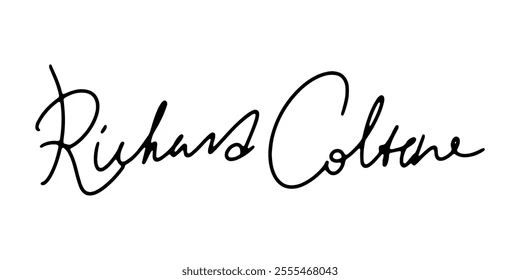 Richard Coltene
shutterstock.com · 2555468043